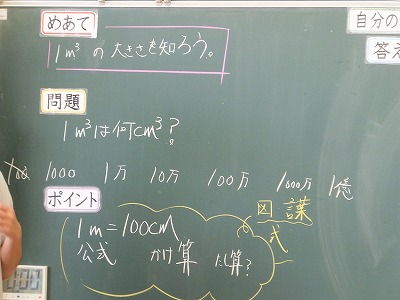 めあて
1m³の大きさを知ろう。
自分の
答え
問題
1m³は何cm³?
100 1000 1万 10万 100万 1000万 1億
ポイント
1m=100cm
公式 かけ算 たし算?
図 言葉
式